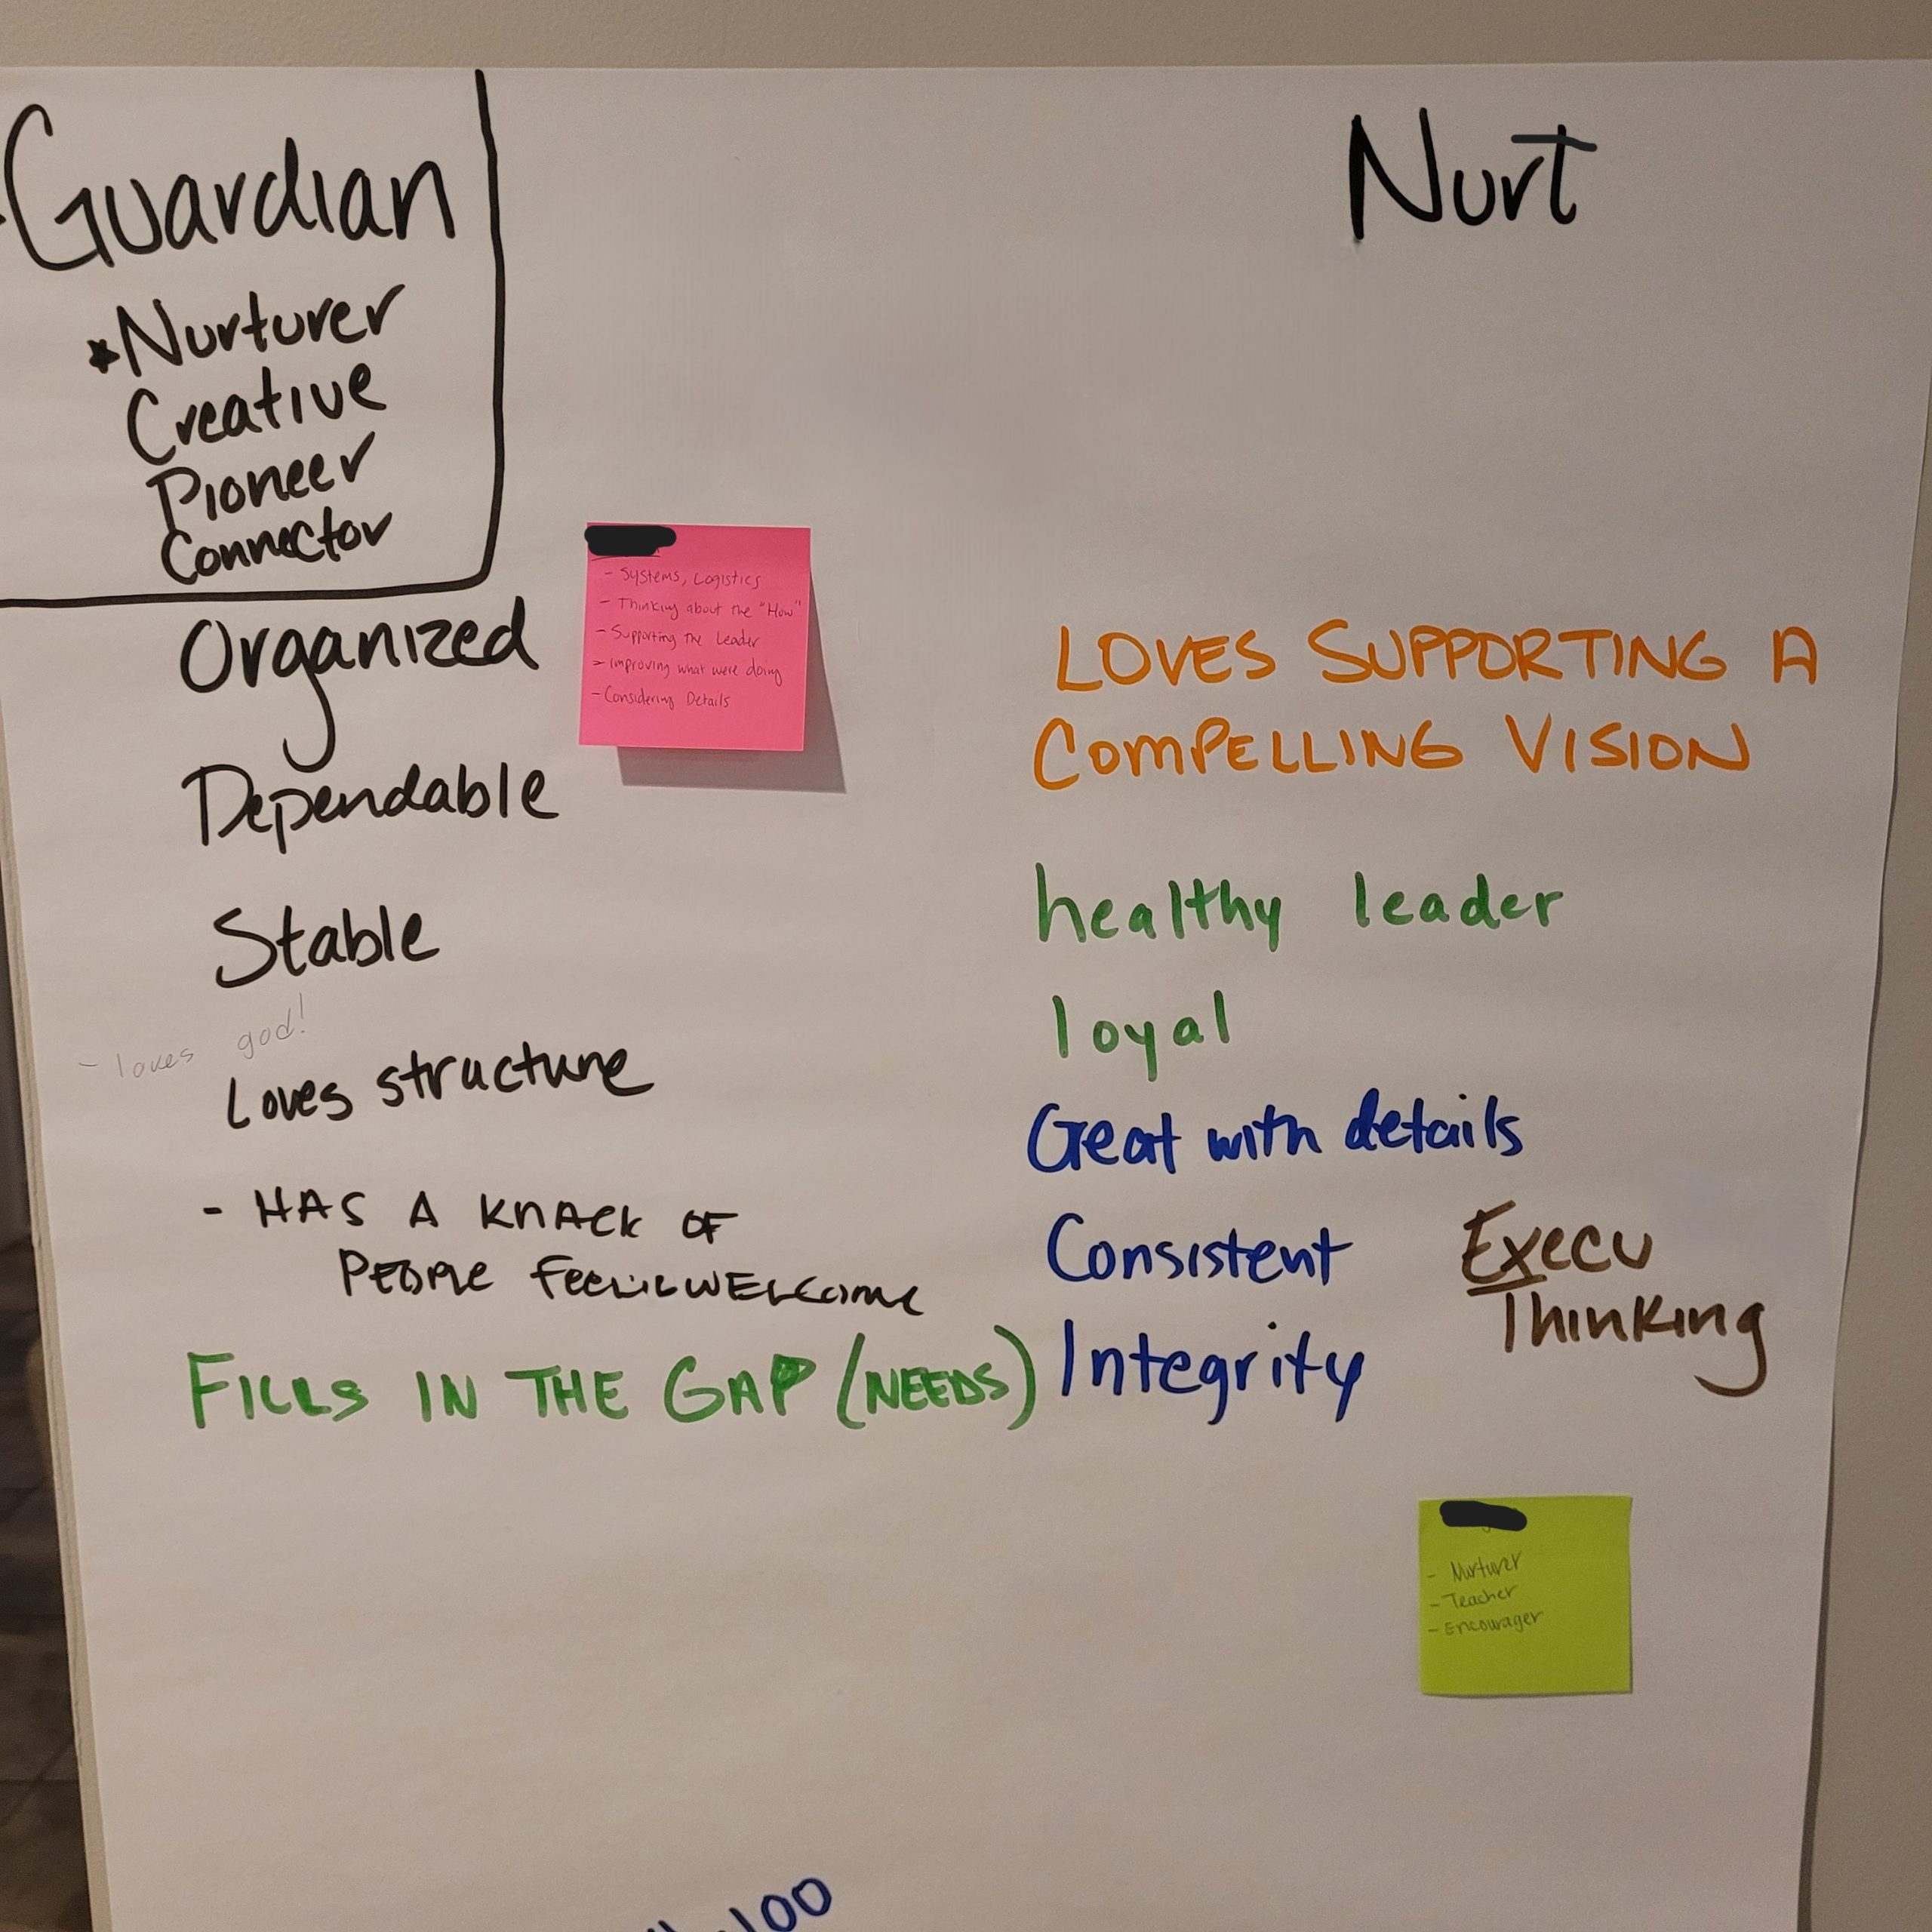 Guardian
*Nurturer
Creative
Pioneer
Connector
Nurt
- Systems, Logistics
- Thinking about the "How"
- Supporting the Leader
- Improving what were doing
- Considering Details
Organized
Dependable
Stable
- loves god!
Loves structure
- HAS A KNACK OF
PEOPLE WELCOME
FILLS IN THE GAP (NEEDS)
LOVES SUPPORTING A
COMPELLING VISION
healthy leader
loyal
Great with details
Consistent
Integrity
Execu
Thinking
- Nurturer
- Teacher
- Encourager
100